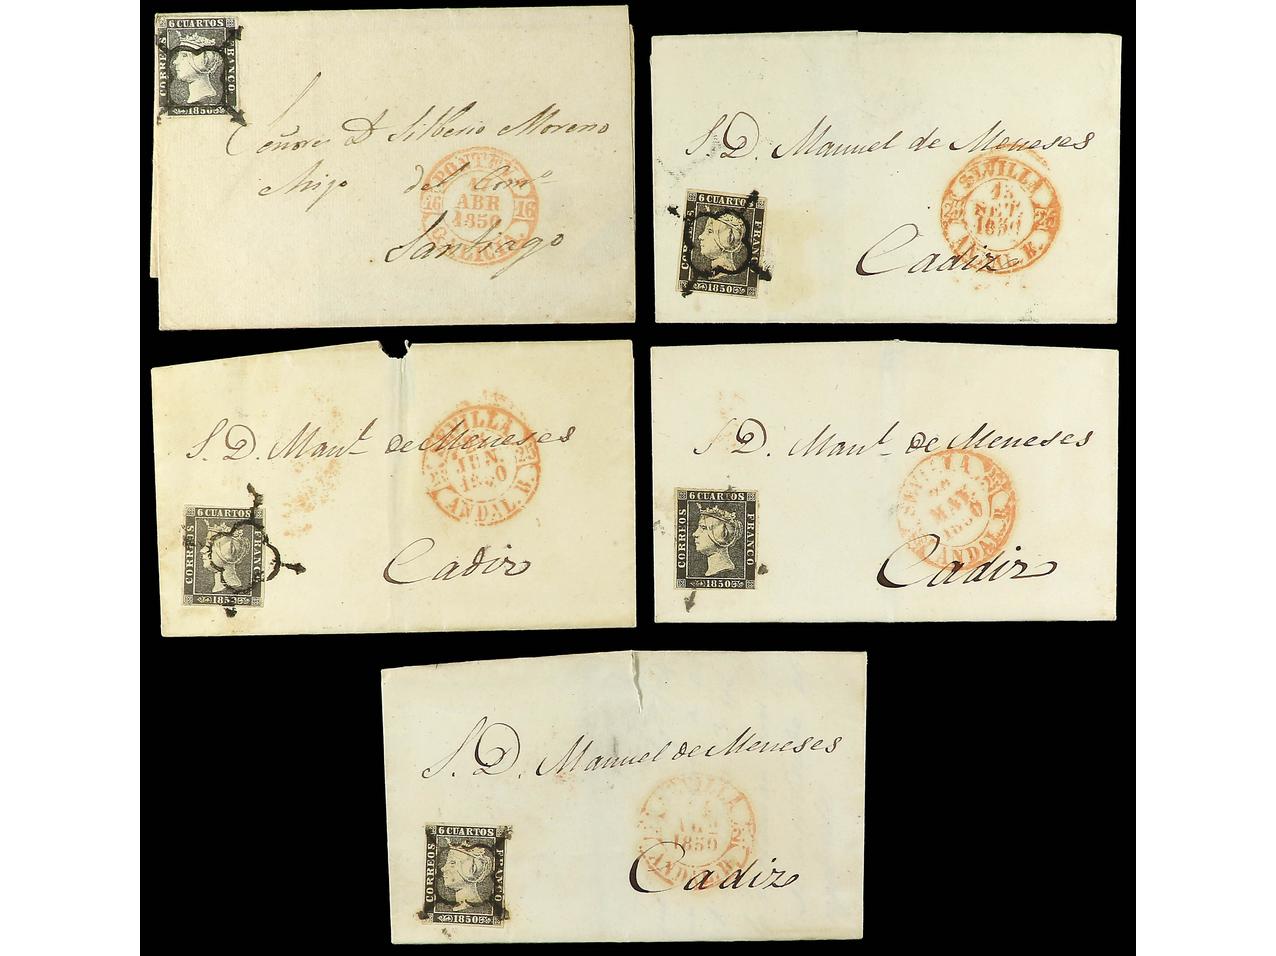 6 CUARTOS
CORREOS
FRANCO
1850
Señor D. Silberio Moreno
del Como
Santiago
16
ABR
1850
16
GALICIA.
S. D. Manuel de Meneses
Cadiz
6 CUARTOS
FRANCO
1850
SEVILLA
15
SET.
1850
25
ANDAL. B.
S. D. Manl. de Meneses
Cadiz
6 CUARTOS
CORREOS
FRANCO
SEVILLA
JUN.
25
ANDAL. B.
S. D. Manl. de Meneses
Cadiz
6 CUARTOS
CORREOS
FRANCO
1850
MAY
1850
ANDAL. B.
S. D. Manuel de Meneses
Cadiz
6 CUARTOS
CORREOS
FRANCO
1850
SEVILLA
1850
ANDAL. B.